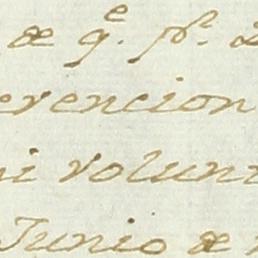 de q.e p.r 2
erencion
ni volunt
Junio de